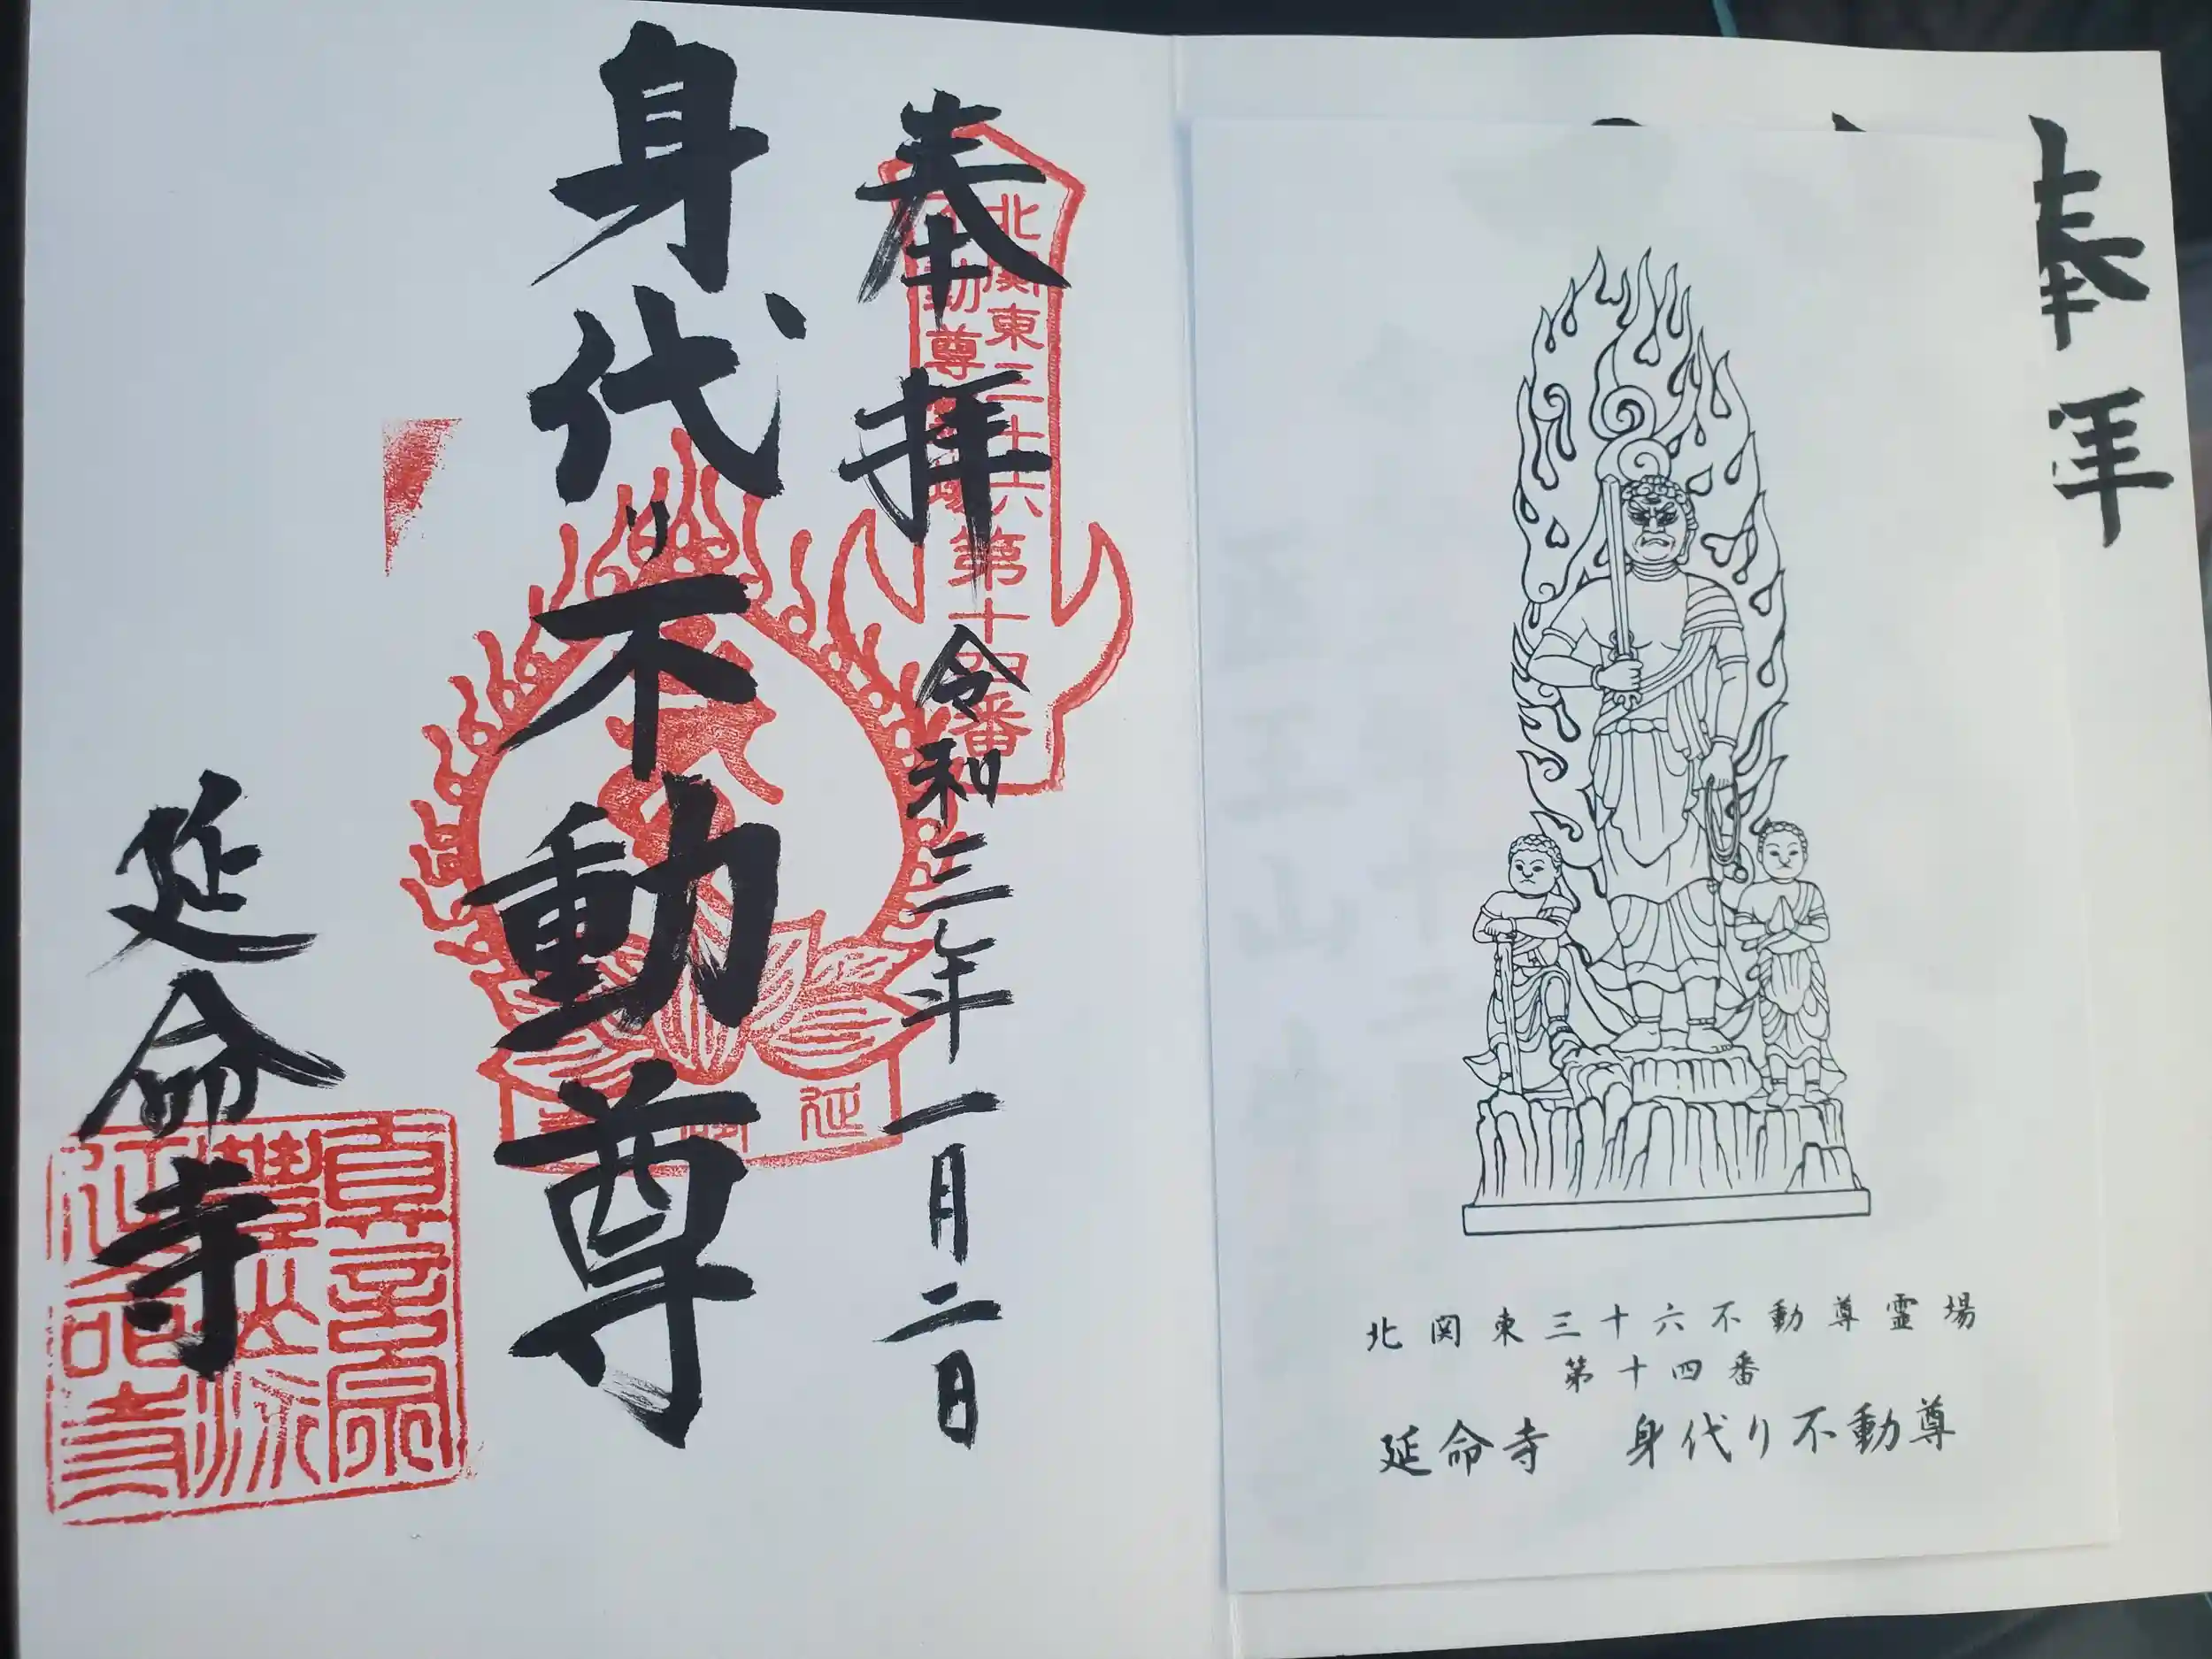 奉拝
北関東三十六不動尊霊場
第十四番
延命寺 身代り不動尊
奉拝 令和三年一月二日
北関東三十六
不動尊霊場
第十四番
身代り不動尊
延命寺